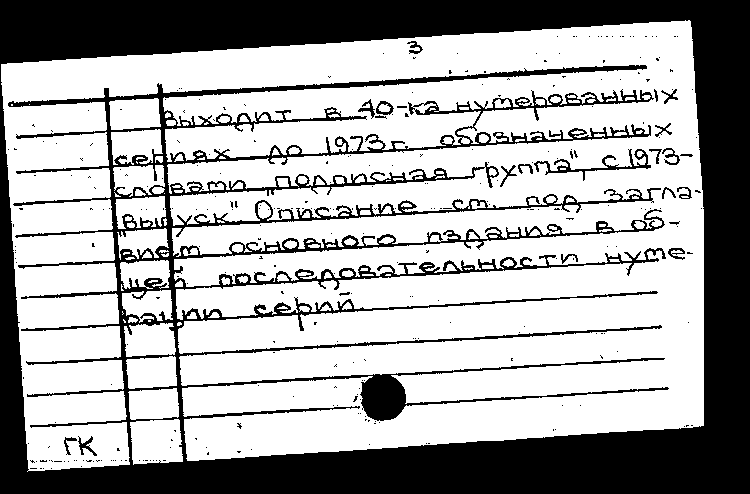 3
Выходит в 40-ка нумерованных
сериях до 1973 г. обозначенных
словами „подписная группа", с 1973-
„выпуск". Описание см. под загла-
вием основного издания в об-
щей последовательности нуме-
рации серий.
ГК